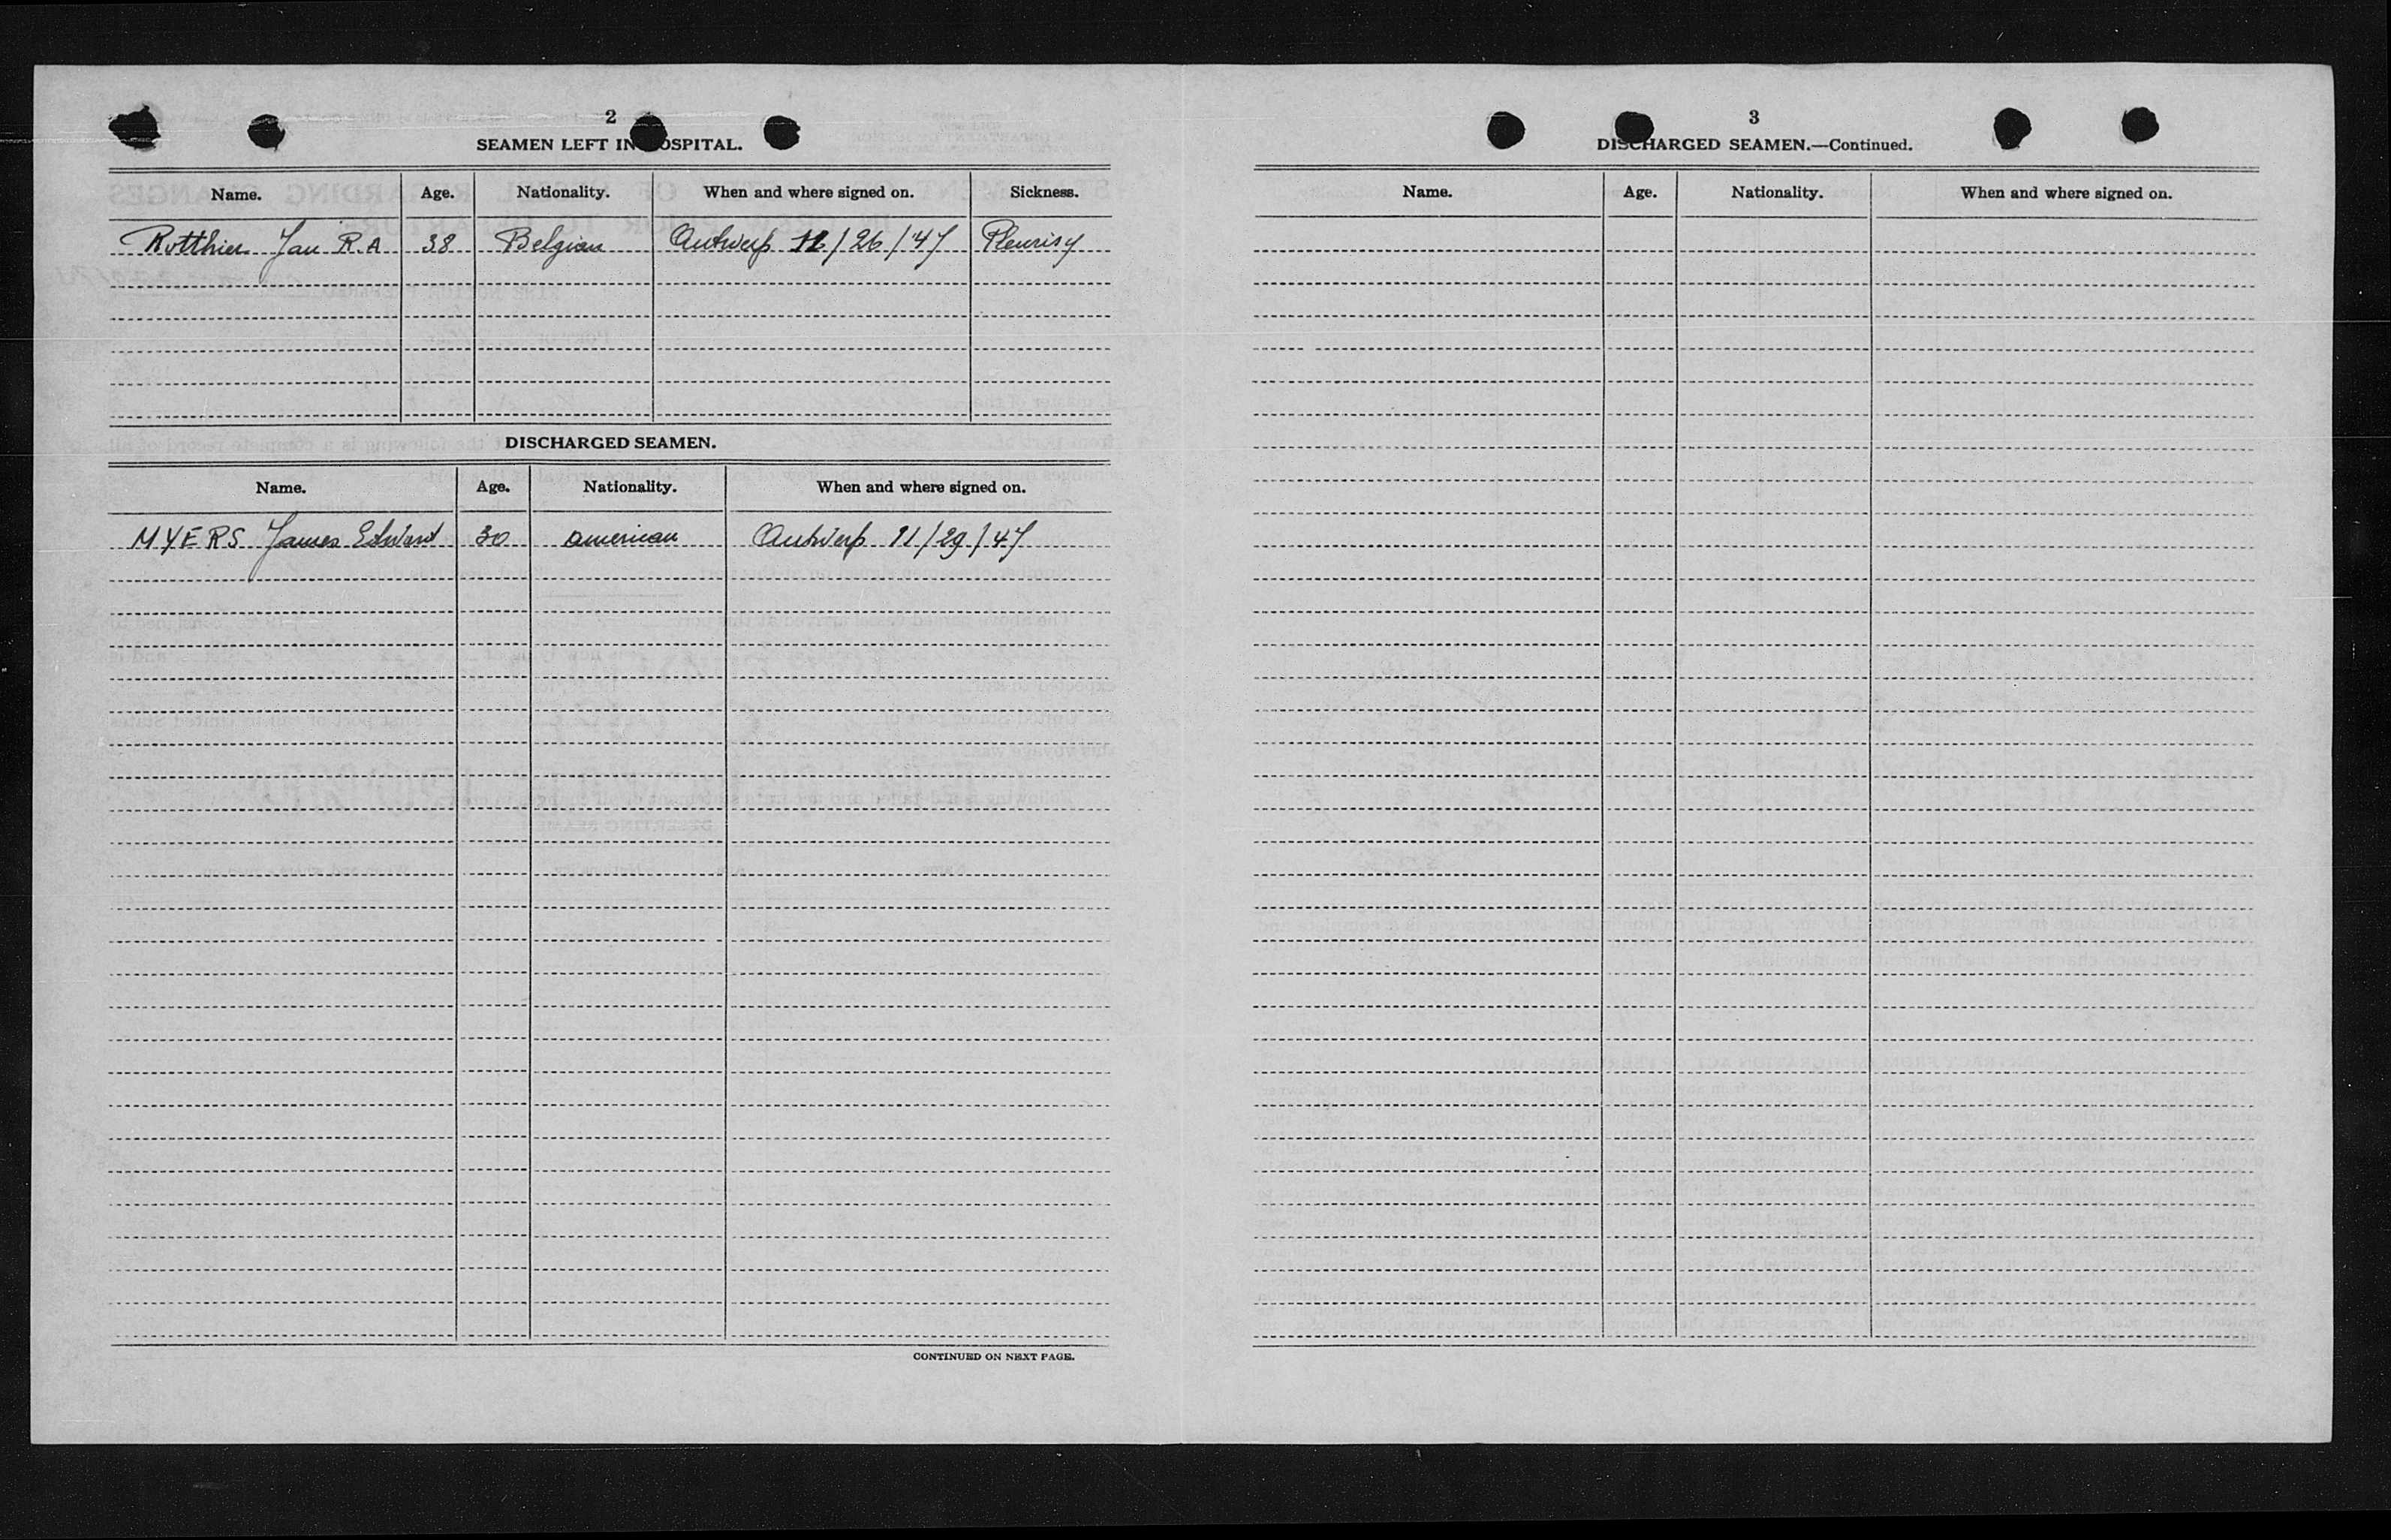 2
SEAMEN LEFT IN HOSPITAL.
Name. Age. Nationality. When and where signed on. Sickness.
Rotthier Jan R.A 38 Belgian Antwerp 11/26/47 Pleurisy
DISCHARGED SEAMEN.
Name. Age. Nationality. When and where signed on.
MYERS James Edward 30 american Antwerp 11/29/47
CONTINUED ON NEXT PAGE.
3
DISCHARGED SEAMEN.—Continued.
Name. Age. Nationality. When and where signed on.